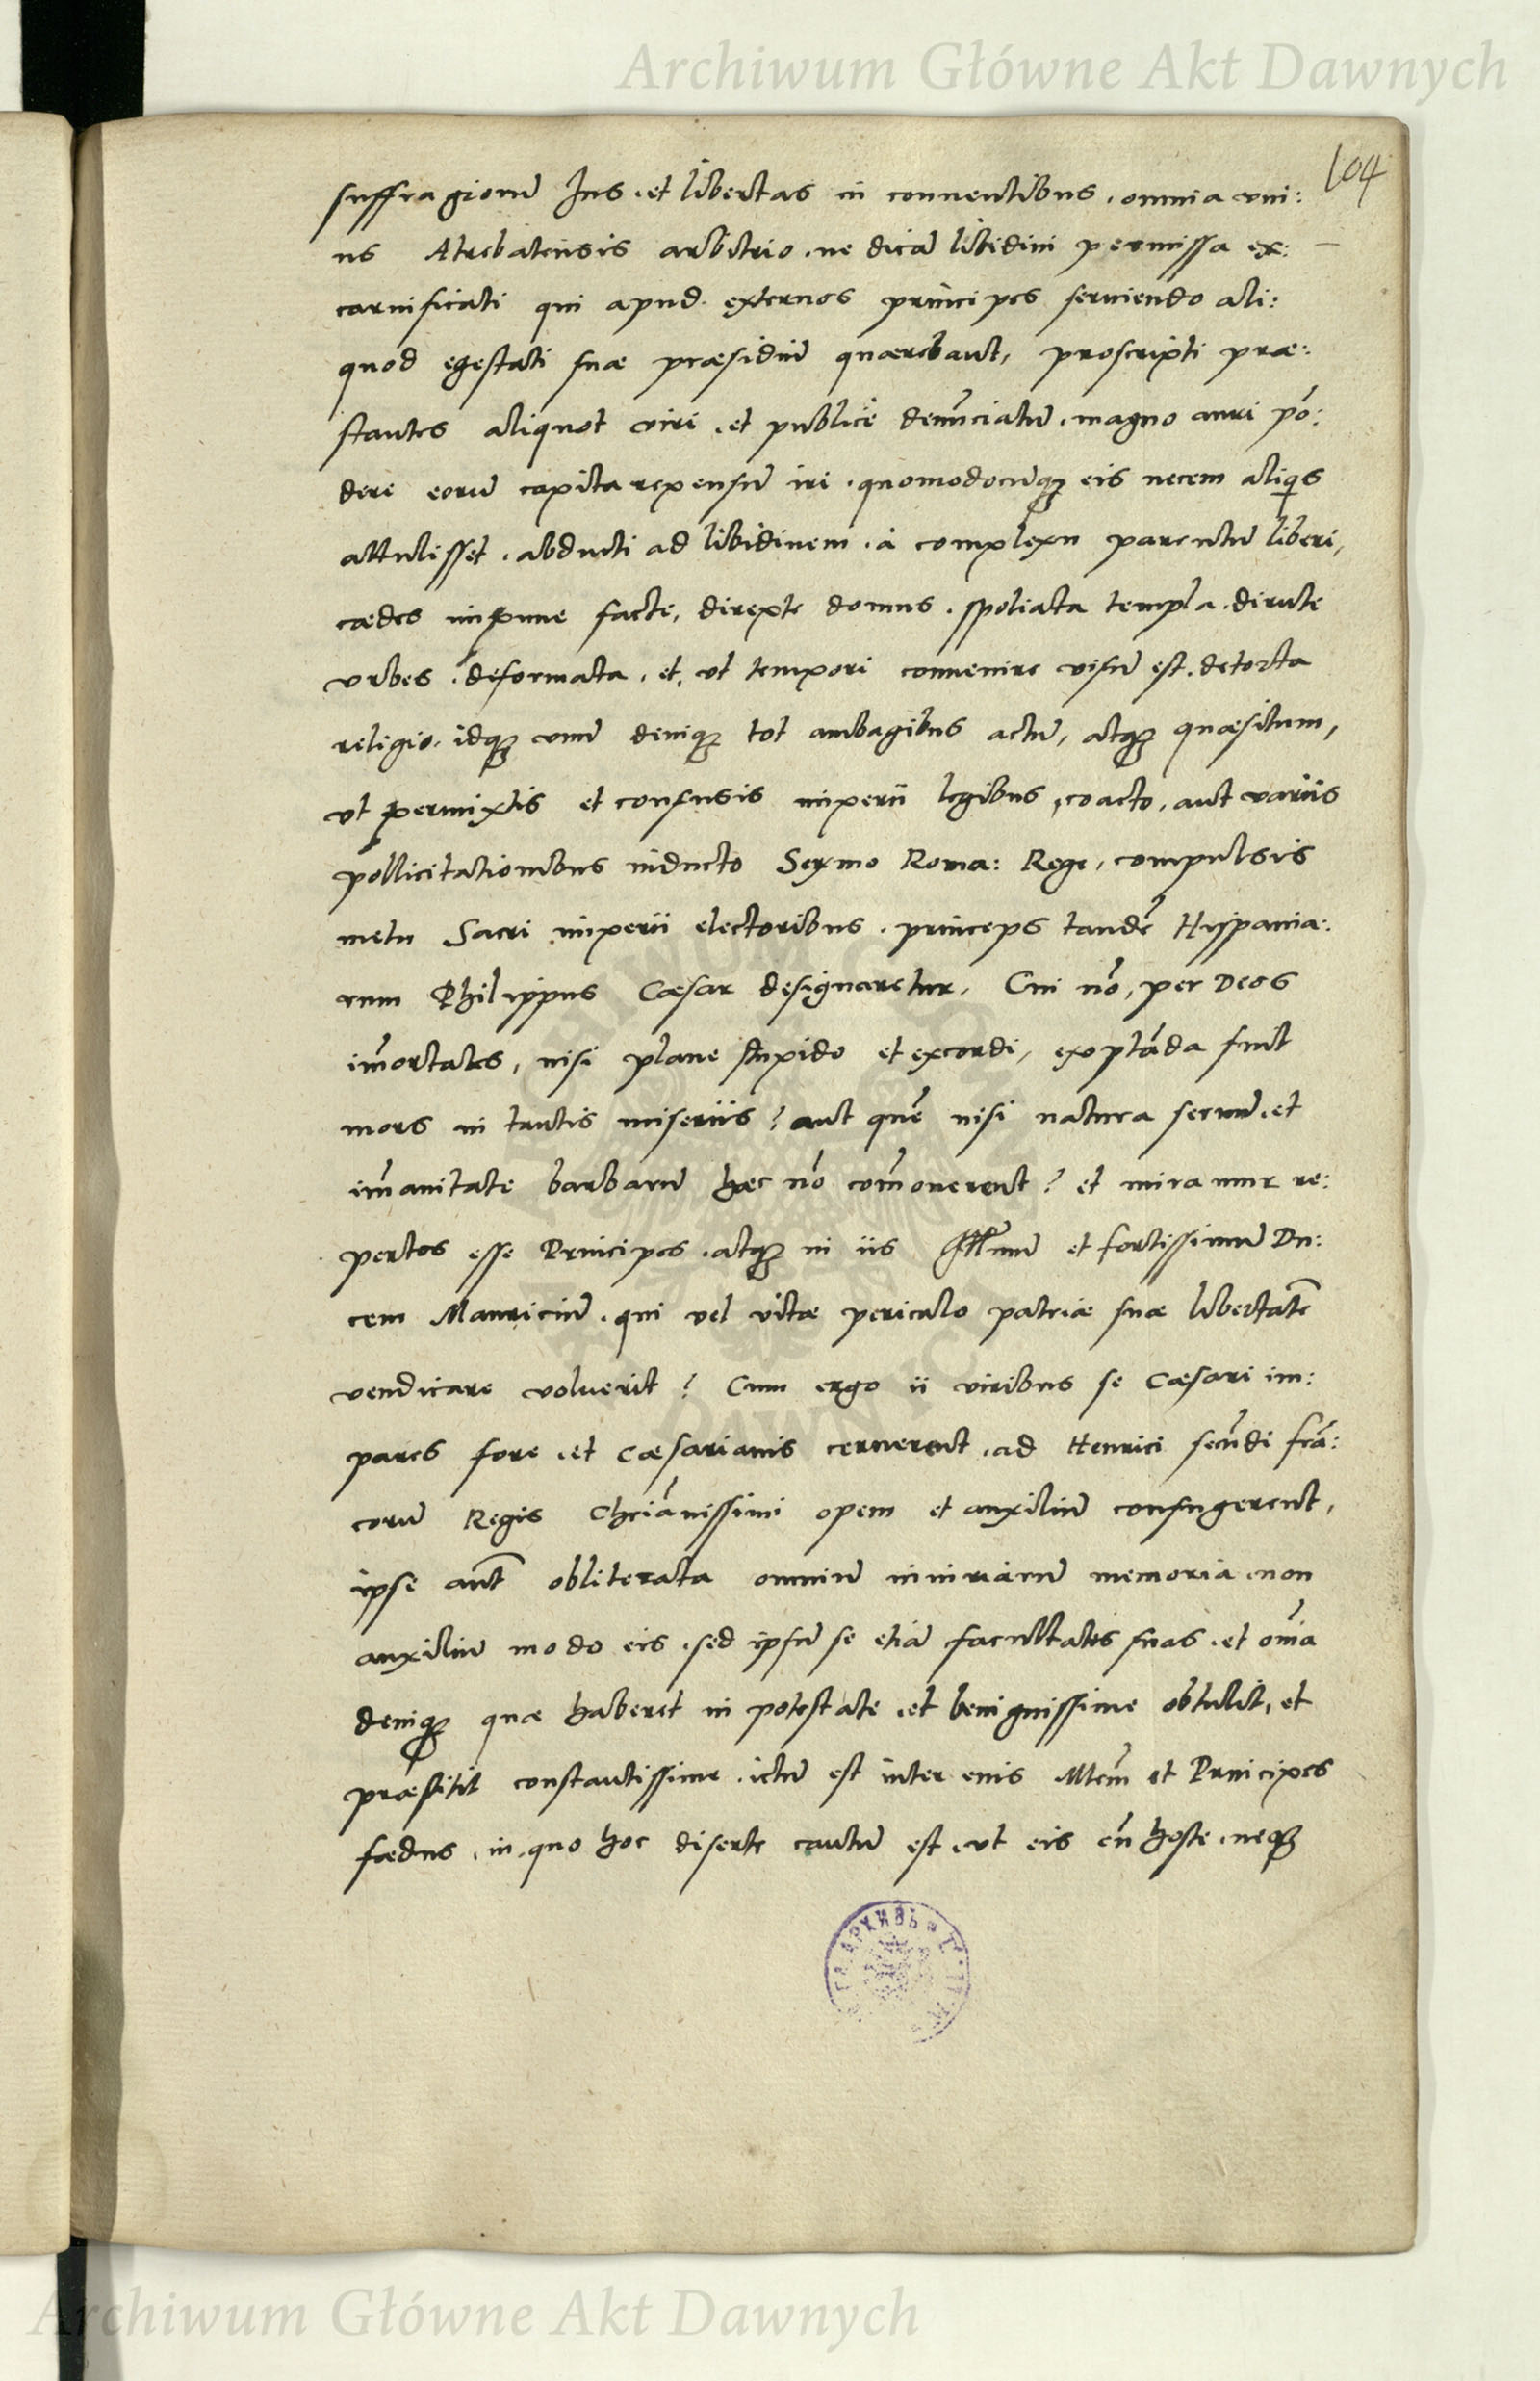 Archiwum Główne Akt Dawnych
104
suffragiorũ Ius, et libertas in conuentibus, omnia vni:
us Atrebatensis arbitrio, ne dicã libidini permissa ex:
carnificati qui apud externos principes seruiendo ali:
quod egestati suæ præsidiũ quærebant, proscripti præ:
stantes aliquot viri, et publice denũciatũ, magno auri põ:
dere eorũ capita repensũ iri, quomodocũq; eis necem aliqis
attulisset, abducti ad libidinem, à complexu parentũ liberi,
cædes impune facte, direpte domus, spoliata templa, dirute
vrbes, deformata, et, vt tempori conuenire visũ est, detorta
religio, idq; vnũ deniq; tot ambagibus actũ, atq; quæsitum,
vt permixtis et confusis imperii legibus, coacto, aut variis
pollicitationibus inducto Sermo Roma: Rege, compulsis
metu Sacri imperii electoribus, princeps tandẽ Hispania:
rum Philippus Cæsar designaretur. Cui nõ, per Deos
im̃ortales, nisi plane stupido et excordi, exoptãda fuit
mors in tantis miseriis? aut quẽ nisi natura ferum, et
im̃anitate barbarũ hæc nõ com̃ouerent? et miramur re:
pertos esse Principes, atq; in iis Illmum̃ et fortissimũ Du:
cem Mauriciũ, qui vel vitæ periculo patriæ suæ libertatẽ
vendicare voluerit? Cum ergo ii viribus se Cæsari im:
pares fore, et Cæsarianis cernerent, ad Henrici secũdi frã:
corũ Regis Chriãnissimi opem et auxiliũ confugerent,
ipse aut̃ obliterata omniũ iniuriarũ memoria, non
auxiliũ modo eis, sed ipsũ se etiã facultates suas, et om̃ia
deniq; quæ haberet in potestate, et benignissime obtulit, et
præstitit constantissime, ictũ est inter eius Mtem̃ et Principes
fœdus, in quo hoc diserte cautũ est, vt eis cũ hoste, neq;
Archiwum Główne Akt Dawnych